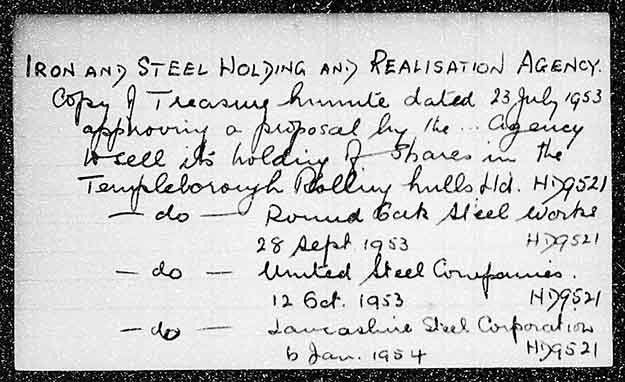 IRON AND STEEL HOLDING AND REALISATION AGENCY.
Copy of Treasury Minute dated 23 July 1953
approving a proposal by the ... Agency
to sell its holding of shares in the
Templeborough Rolling Mills Ltd. HD9521
— do — Round Oak Steel Works
28 Sept 1953 HD9521
— do — United Steel Companies.
12 Oct. 1953 HD9521
— do — Lancashire Steel Corporation
6 Jan. 1954 HD9521